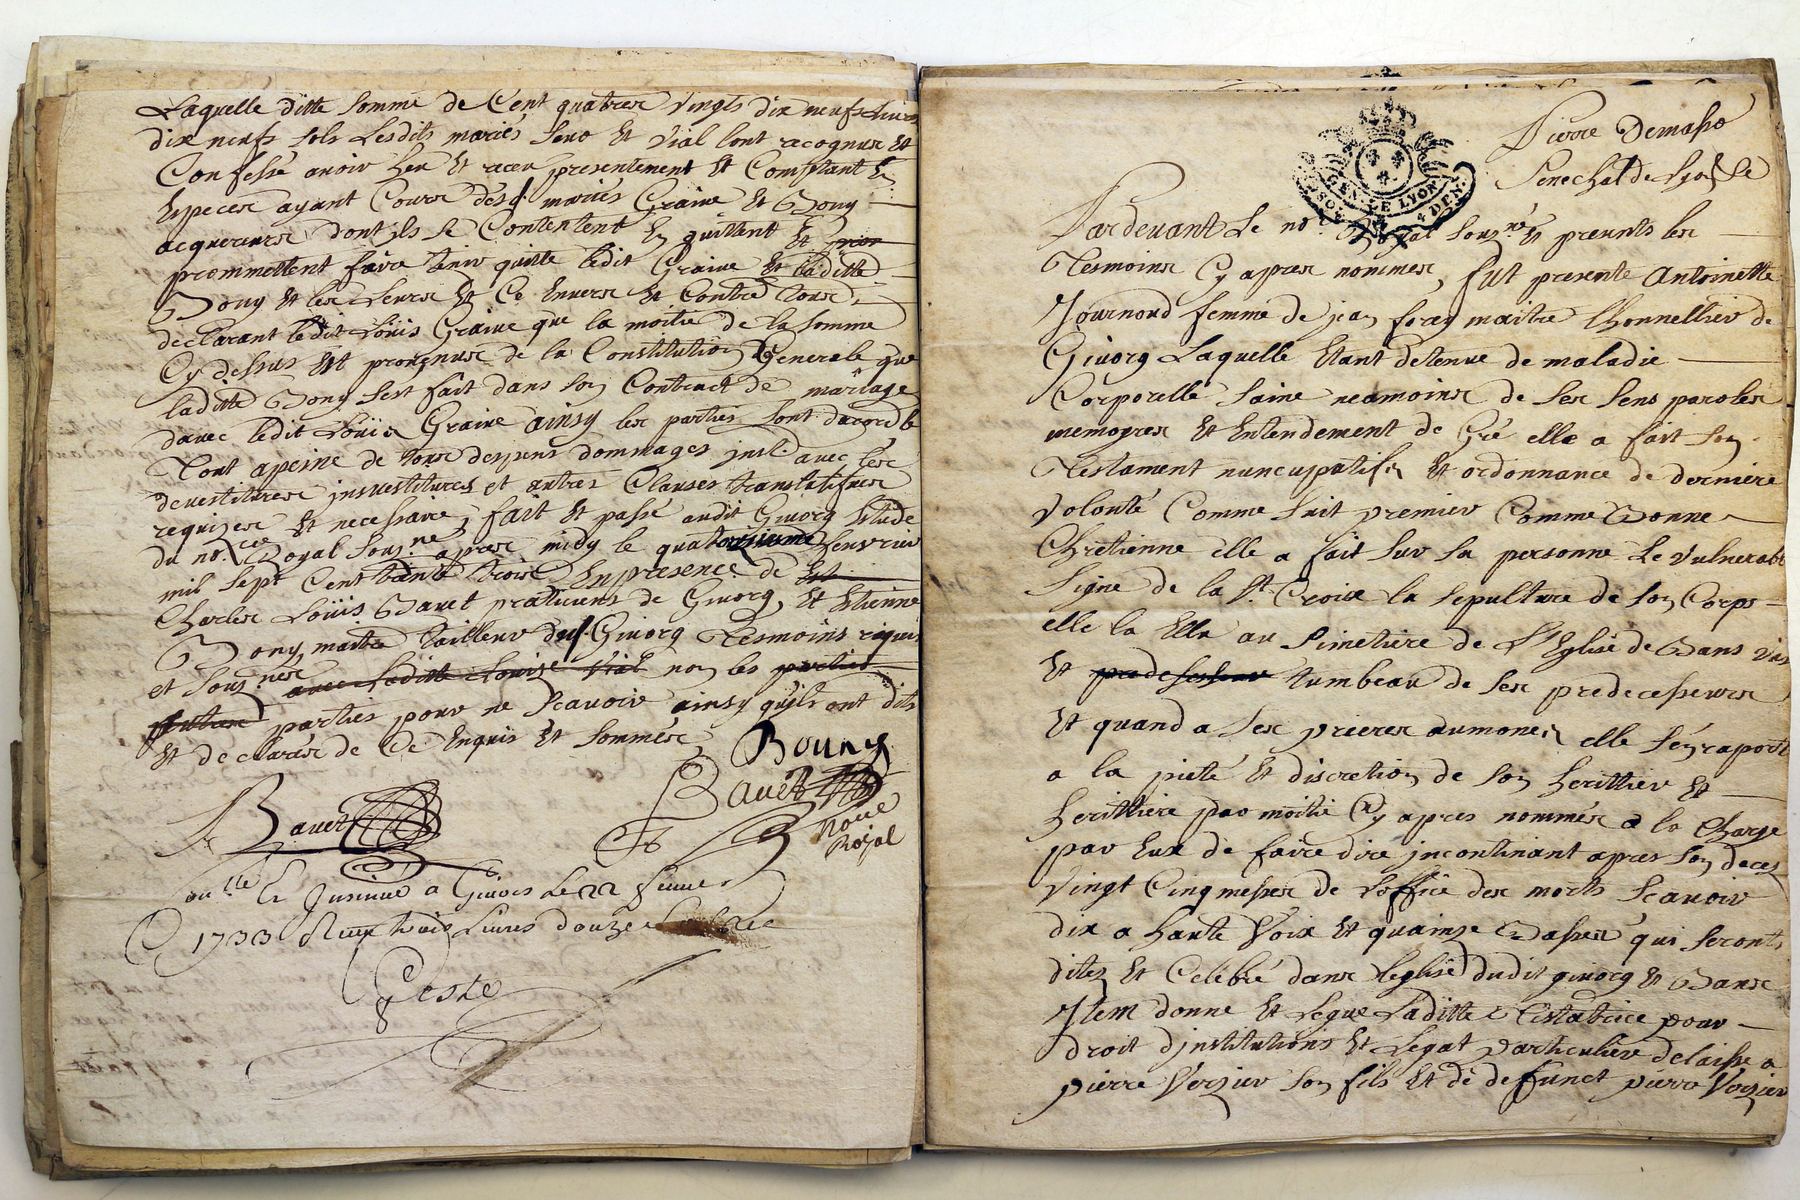 Laquelle ditte somme de Cent quatres vingts dix neufs livres
dix neufs sols Lesdits mariés Seuo Et Vial lont racognus Et
Confessé avoir heu Et receu presentement Et Comptant En
Especes ayant Cours desd. mariés Graine Et Bony
acquereurs dont ils se Contentent En quittent Et
prommettent faire tenir quitte ledit Graine Et laditte
Bony Et les Leurs Et Ce Envers Et Contre tous
declarant ledit Loüis Graine que la moitié de la somme
Cy dessus Est provenue de la Constitution Generale que
laditte Bony sest fait dans son Contract de mariage
davec ledit Loüis Graine ainsy les parties sont dacord
Tout apeine de tous despens dommages inst. avec les
devestitures investitures et autres Clauses translatives
requises et necessaire, fait Et passé audit Givors Etude
du no.re Royal Sousne apres midy le quatorzieme feuvrier
mil sept Cent trante trois En presence de Est
Charles Loüis Bavet praticiens de Givors, Et Etienne
Bony maitre tailleur dud. Givors Tesmoins requis
et Sousnes avec laditte Louise Vial non les parties
parties pour ne scavoir ainsy quils ont dits
Et declarés de Ce Enquis Et Sommés
Bouny
Bavet
Bavet
Noue
Royal
on.lle Et Jnsinué a Givors Le 22 feuvr.
1733 Reçu trois Livres douze
Geste
Pierre Demasso
Senechal de Lyon
GEN DE LYON
4 DEN.
Pardevant Le no Royal Souzné Et presents les
Tesmoins Cy apres nommes, fut presente Antoinette
Journond femme de jean foray maitre Chonnellier de
Givors Laquelle Etant detenue de maladie
Corporelle Saine neamoins de Ses Sens paroles
memoyres Et Entendement de Gré elle a fait Son
Testament nuncupatifs Et ordonnance de derniere
Volonté Comme Suit premier Comme Bonne
Chretienne elle a fait Sur Sa personne Le Vulnerable
Signe de la St. Croix la Sepulture de Son Corps
elle la Elle au Simetiere de l'Eglise de Bans
Et predesesseur tumbeau de Ses predecesseurs
Et quand a Ses prieres aumones elle Sén raporte
a la pieté Et discretion de Son heritier Et
heritiere par moitié Cy apres nommés a la Charge
par Eux de faire dire jncontinant apres Son deces
Vingt Cinq messes de Loffice des morts Scavoir
dix a haute Voix Et quainze Basses qui Seronts
dites Et Celebré dans leglise dudit givors Et Banse
Jtem donne Et Legue Laditte Testatrice pour
droit djnstitutions Et Legat particuliere delaisse a
pierre Verzier Son fils Et de deffunct pierre Verzier